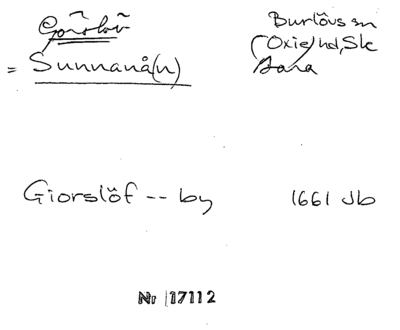 Görslöv
= Sunnanå(n)
Burlövs sn
(Oxie) hd, Sk
Bara
Giorslöf -- by
1661 Jb
Nr 17112